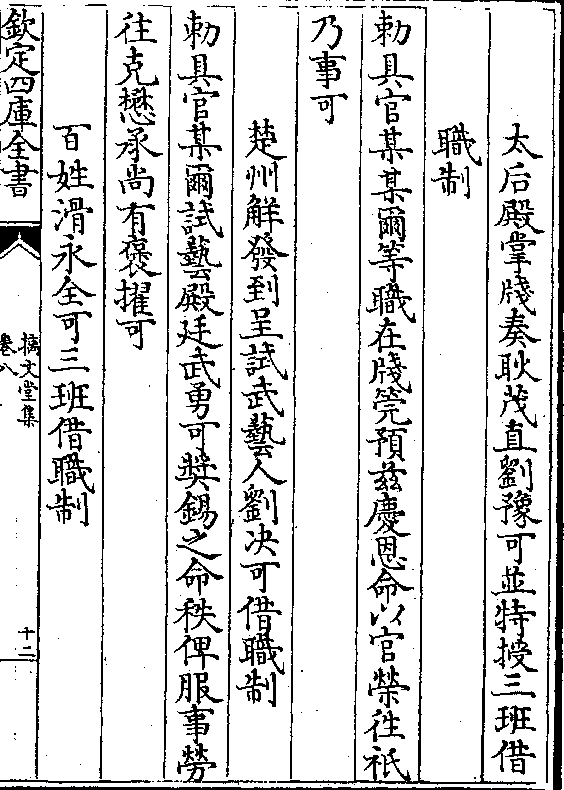 太后殿掌牋奏耿茂直劉豫可並特授三班借
職制
勅具官某某爾等職在牋筦預茲慶恩命以官榮往祗
乃事可
楚州解發到呈試武藝人劉決可借職制
勅具官某爾試藝殿廷武勇可奬錫之命秩俾服事勞
往克懋承尚有褒擢可
百姓滑永全可三班借職制
欽定四庫全書
摛文堂集
卷八
十二